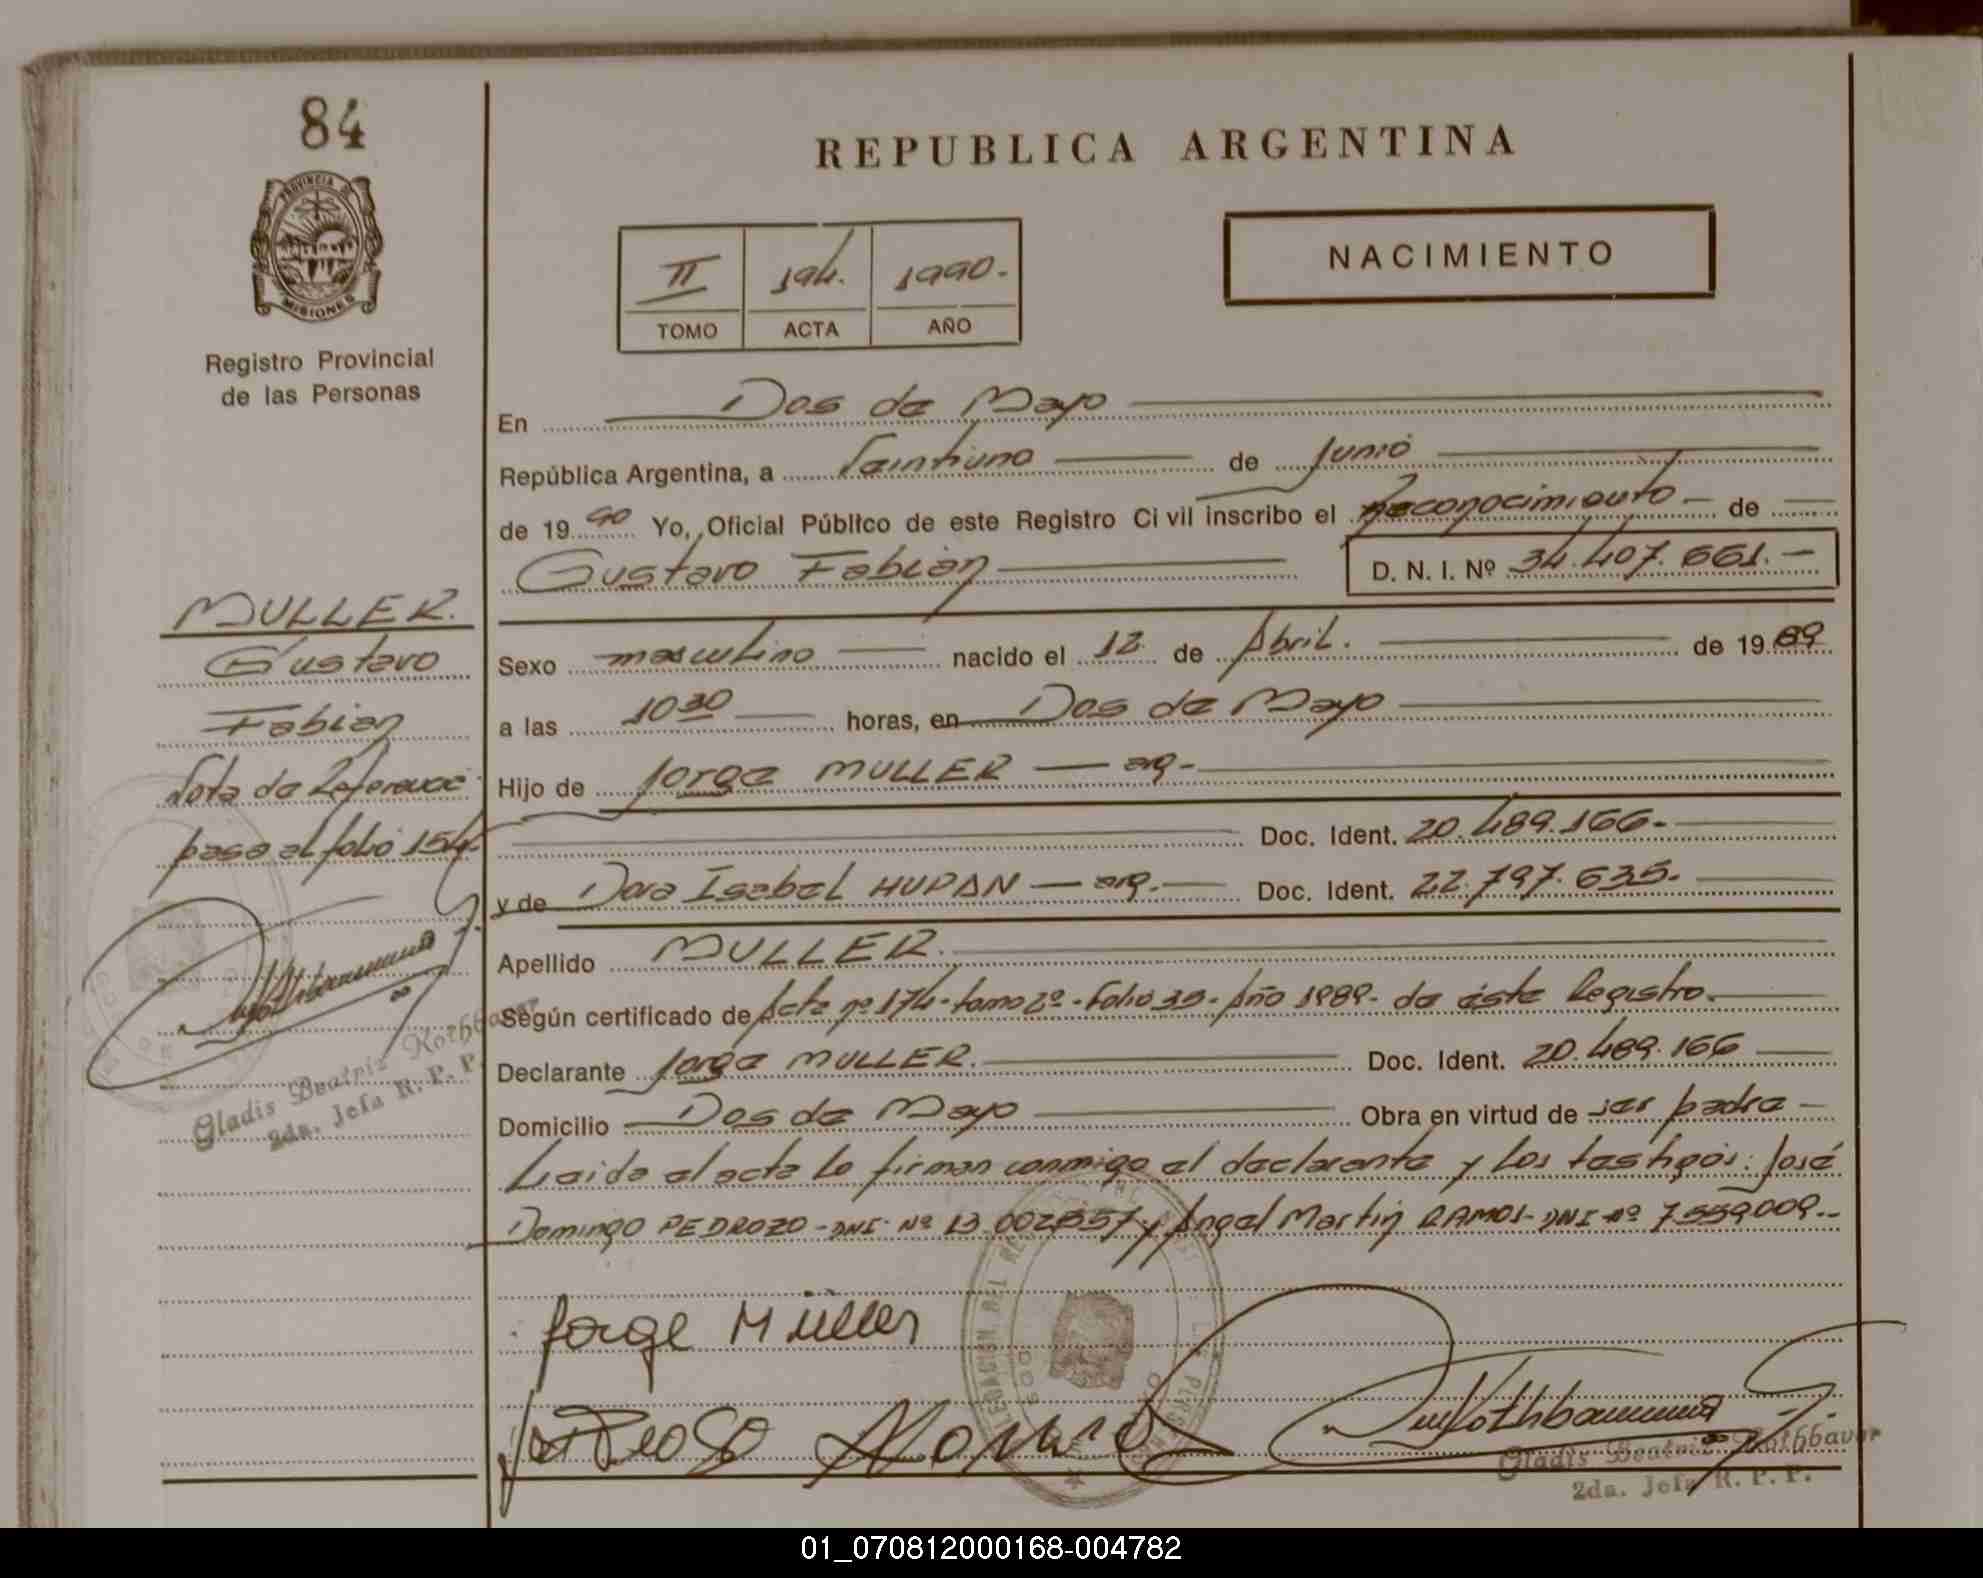 84
REPUBLICA ARGENTINA
PROVINCIA DE
MISIONES
Registro Provincial
de las Personas
NACIMIENTO
II 194. 1990.-
TOMO ACTA AÑO
En Dos de Mayo
República Argentina, a Veintiuno de Junio
de 19 90 Yo, Oficial Público de este Registro Civil inscribo el Reconocimiento de
Gustavo Fabian D. N. I. Nº 34.407.661.-
Sexo masculino nacido el 12 de Abril. de 19 89
a las 10 30 horas, en Dos de Mayo
Hijo de Jorge MULLER - arg.-
Doc. Ident. 20.489.166.-
y de Dora Isabel - arg.- Doc. Ident. 22.797.635.-
Apellido MULLER.
Según certificado de Acta nº 174- tomo 2º- Folio 35- Año 1989- de éste Registro.
Declarante Jorge MULLER. Doc. Ident. 20.489.166
Domicilio Dos de Mayo Obra en virtud de ser padre
Leida el acta la firman conmigo el declarante y los testigos: José
Domingo PEDROZO- DNI- Nº y Angel Martin RAMOS- DNI-nº 7.559.009.-
MULLER.
Gustavo
Fabian
Nota de Referencia
pasa al folio 154
Gladis Beatriz
2da. Jefa R. P. P.
Jorge Müller
Gladis Beatriz
2da. Jefa R. P. P.
01_070812000168-004782